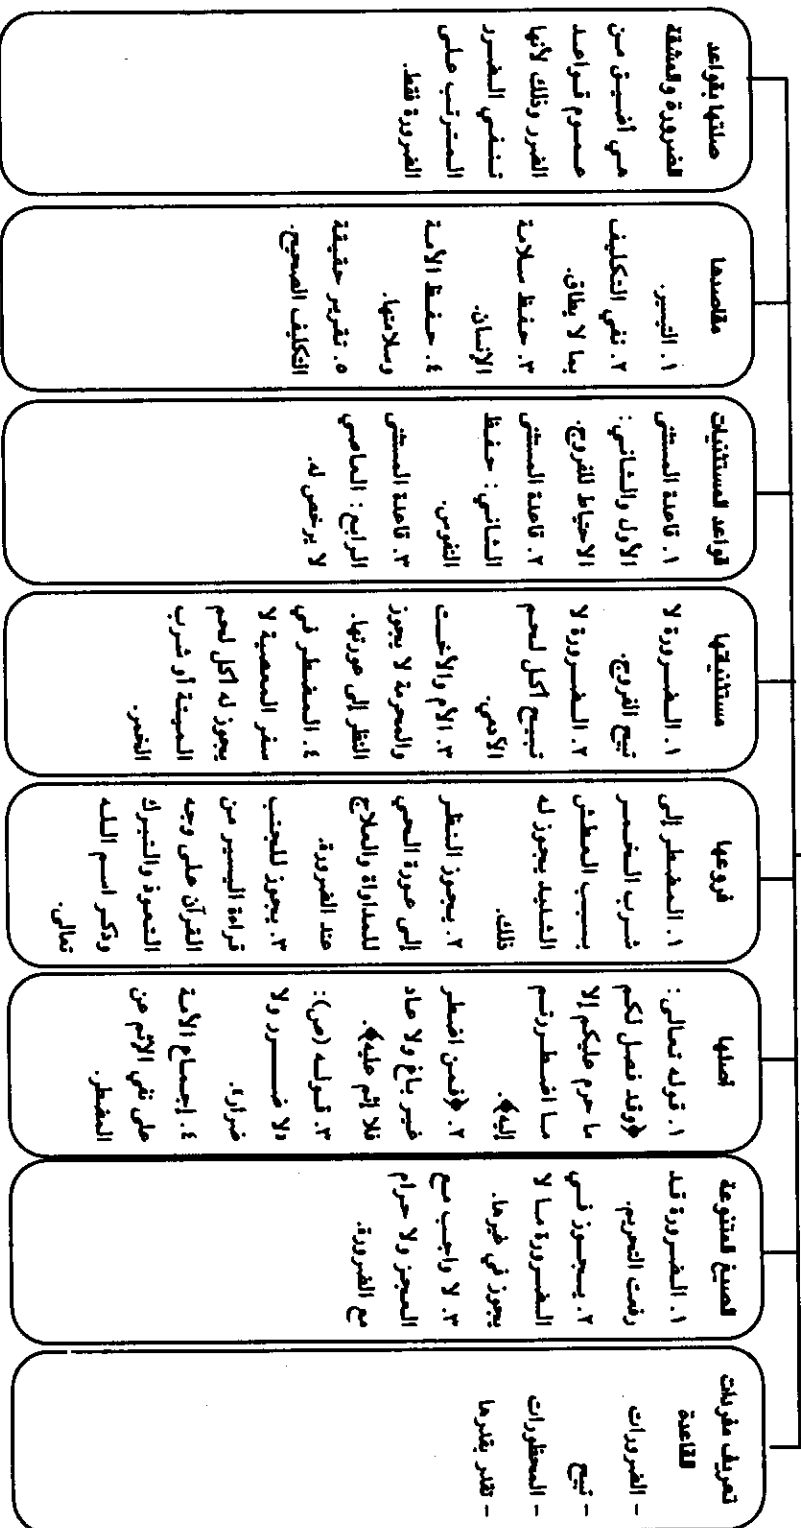 تعريف مفردات
القاعدة
- الضرورات
- تبيح
- المحظورات
- تقدر بقدرها
الصيغ المتنوعة
١. الضرورة قد
رفعت التحريم.
٢. يجوز في
الضرورة ما لا
يجوز في غيرها.
٣. لا واجب مع
العجز ولا حرام
مع الضرورة.
أصلها
١. قوله تعالى:
﴿وقد فصل لكم
ما حرم عليكم إلا
ما اضطررتم
إليه﴾.
٢. ﴿فمن اضطر
غير باغ ولا عاد
فلا إثم عليه﴾.
٣. قوله (ص):
«لا ضرر ولا
ضرار».
٤. إجماع الأمة
على نفي الإثم عن
المضطر.
فروعها
١. المضطر إلى
شرب الخمر
بسبب العطش
الشديد يجوز له
ذلك.
٢. يجوز النظر
إلى عورة الحي
للمداواة والعلاج
عند الضرورة.
٣. يجوز للجنب
قراءة اليسير من
القرآن على وجه
التعوذ والتبرك
وذكر اسم الله
تعالى.
مستثنياتها
١. الضرورة لا
تبيح الفروج.
٢. الضرورة لا
تبيح أكل لحم
الآدمي.
٣. الأم والأخت
والمحرمة لا يجوز
النظر إلى عورتها.
٤. المضطر في
سفر المعصية لا
يجوز له أكل لحم
الميتة أو شرب
الخمر.
قواعد المستثنيات
١. قاعدة المستثنى
الأول والثاني:
الاحتياط للفروج.
٢. قاعدة المستثنى
الثاني: حفظ
النفوس.
٣. قاعدة المستثنى
الرابع: العاصي
لا يرخص له.
مقاصدها
١. التيسير.
٢. نفي التكليف
بما لا يطاق.
٣. حفظ سلامة
الإنسان.
٤. حفظ الأمة
وسلامتها.
٥. تقرير حقيقة
التكليف الصحيح.
صلتها بقواعد
الضرورة والمشقة
هي أضيق من
عموم قواعد
الضرر وذلك لأنها
تنفي الضرر
المترتب على
الضرورة فقط.